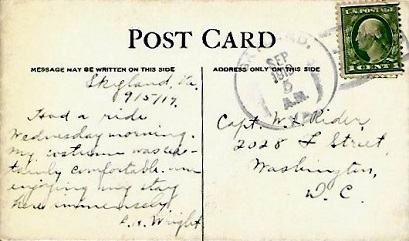 POST CARD
MESSAGE MAY BE WRITTEN ON THIS SIDE
ADDRESS ONLY ON THIS SIDE
Skyland, Va.
9/5/19.
Had a ride
Wednesday morning.
My costume was cer-
tainly comfortable. Am
enjoying my stay
here immensely.
Wright
SEP
5
A.M.
U.S. POSTAGE
1 CENT 1
Capt. W. L. Rider,
2028 F Street,
Washington,
D. C.